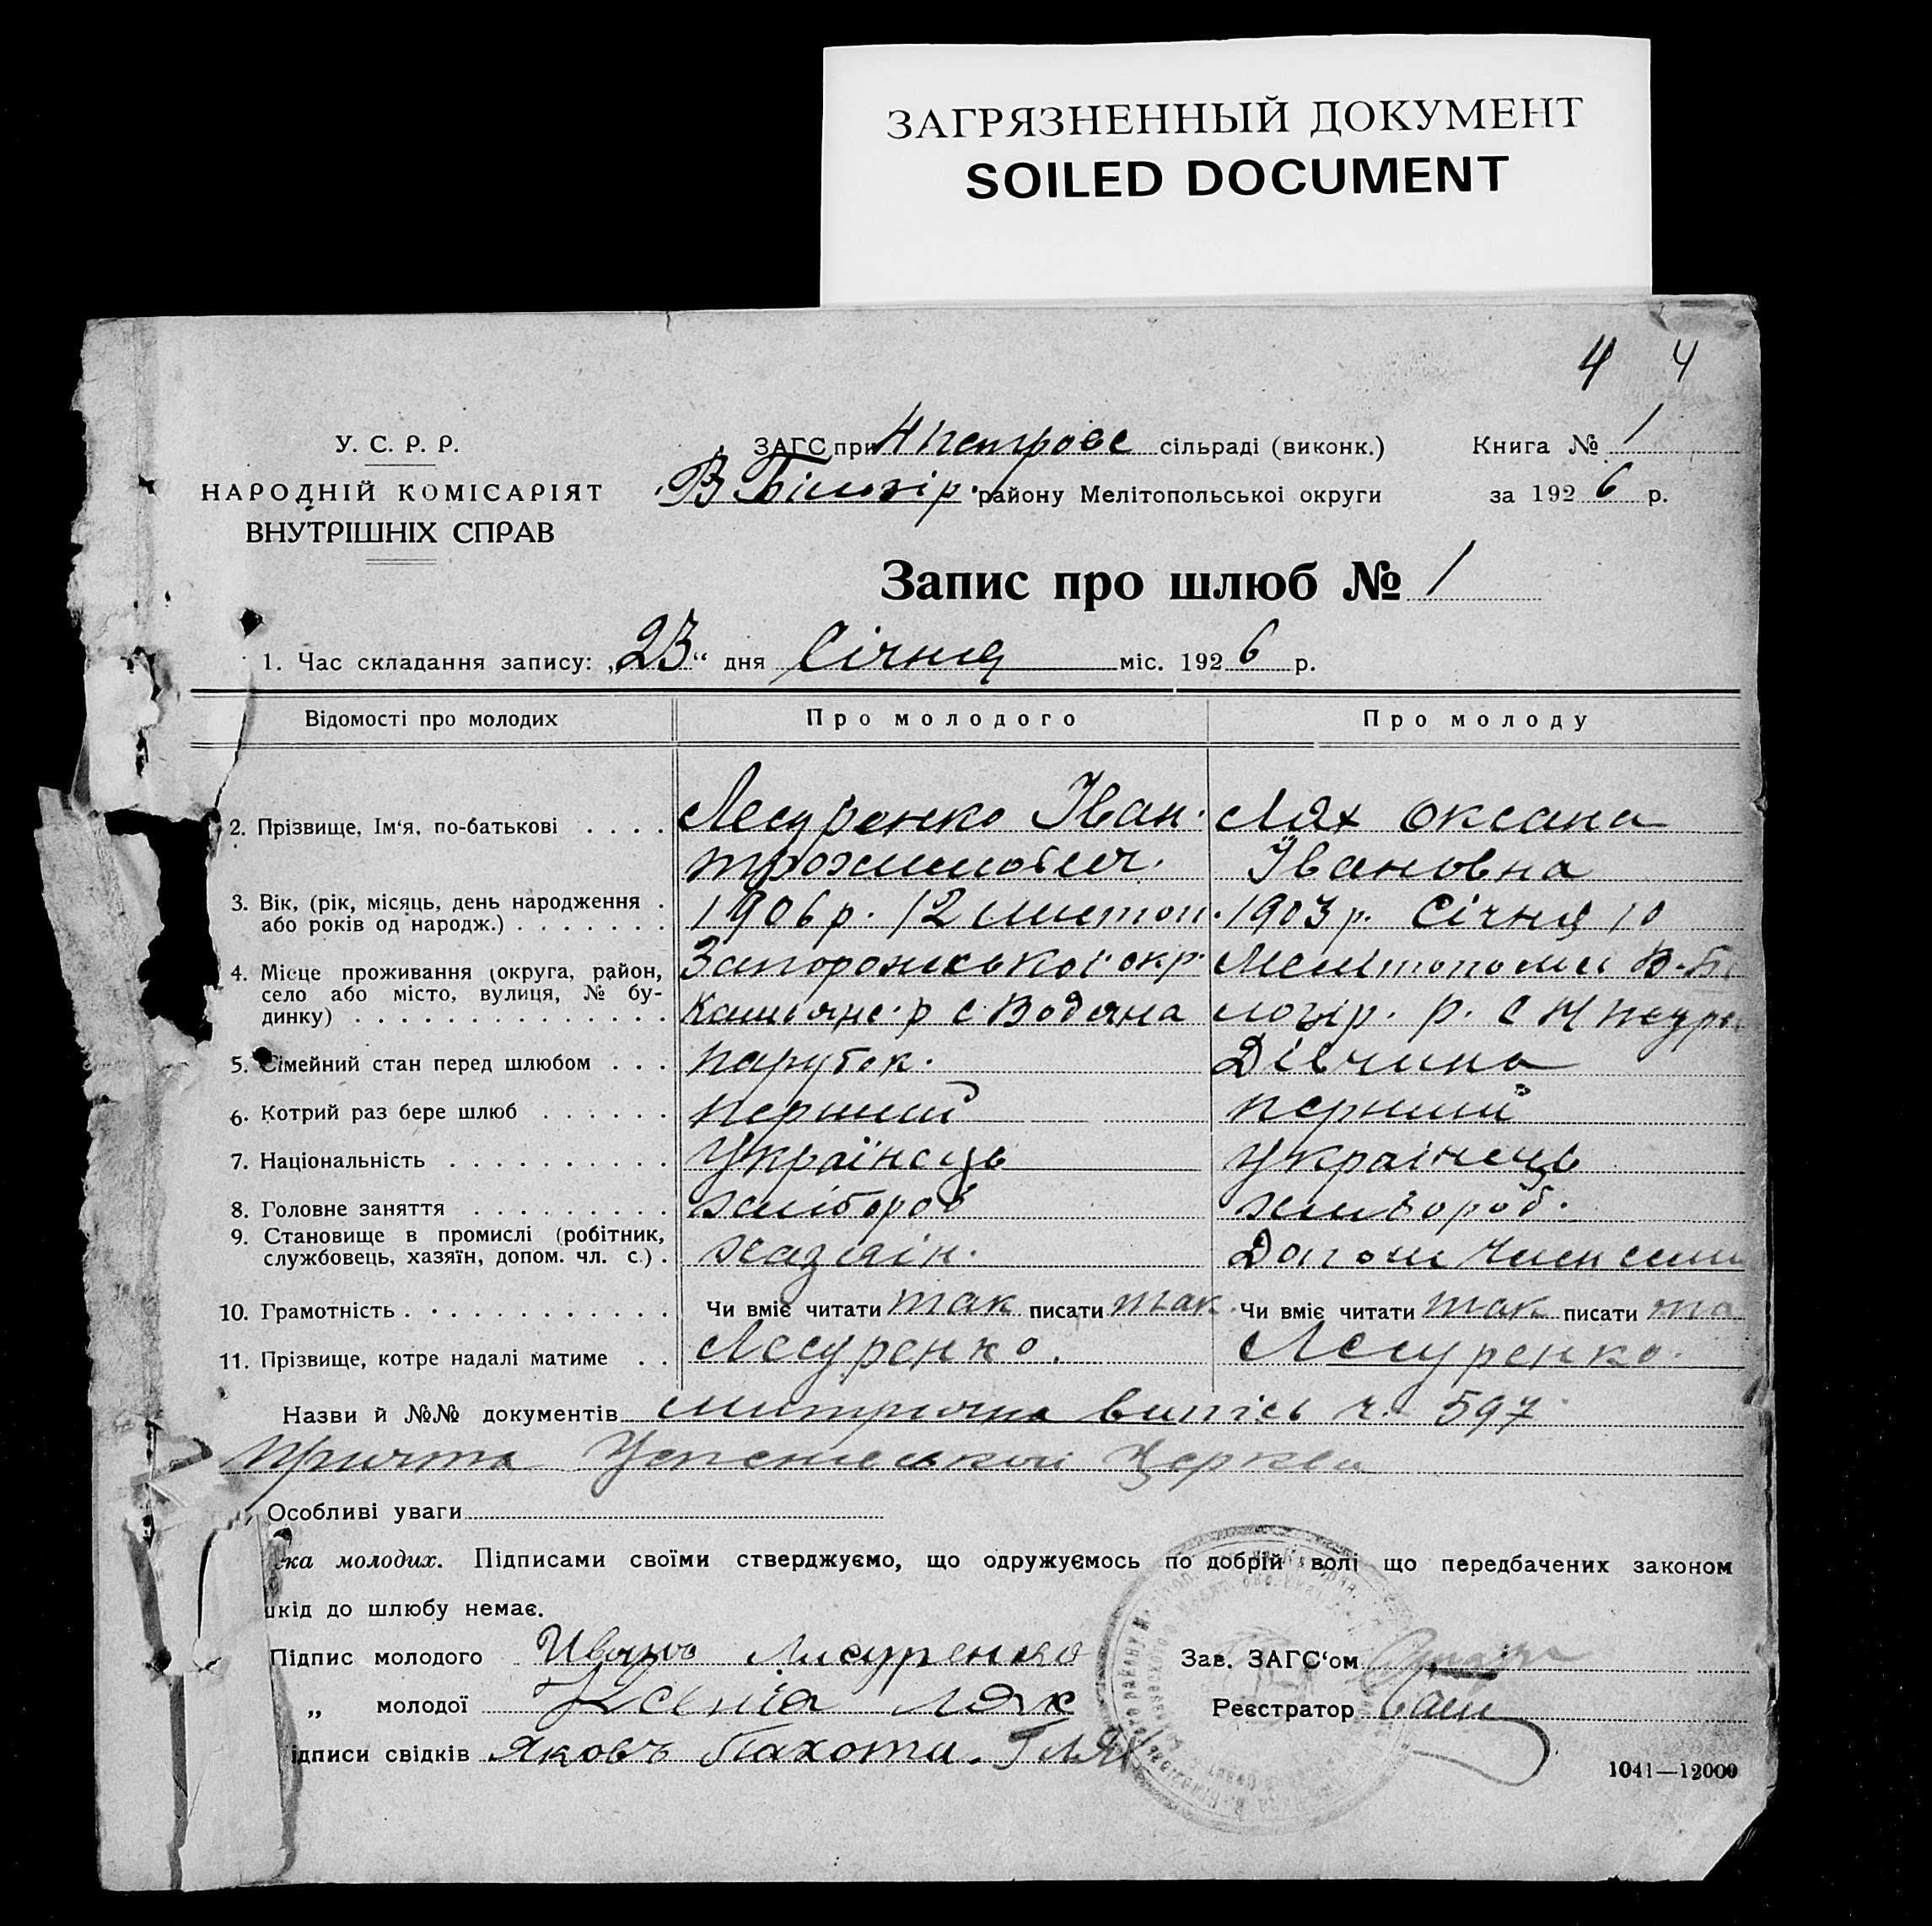 ЗАГРЯЗНЕННЫЙ ДОКУМЕНТ
SOILED DOCUMENT
4 4
У. С. Р. Р.
НАРОДНІЙ КОМІСАРІЯТ
ВНУТРІШНІХ СПРАВ
ЗАГС при Н Петрове сільраді (виконк.)
В Білозір. району Мелітопольської округи
Книга № 1
за 1926 р.
Запис про шлюб № 1
1. Час складання запису: „23“ дня Січня міс. 1926 р.
Відомості про молодих Про молодого Про молоду
2. Прізвище, Ім‘я, по-батькові . . . . Лесуренко Іван. Лях Оксана
Трохимович. Івановна
3. Вік, (рік, місяць, день народження . 1906 р. 12 листоп. 1903 р. Січня 10
або років од народж.) . . . . . . .
4. Місце проживання (округа, район, Запорожської окр. В-Бі
село або місто, вулиця, № бу- р с Водяна лозір. р. с Н
динку) . . . . . . . . . . . . . .
5. Сімейний стан перед шлюбом . . . парубок. Дівчина
6. Котрий раз бере шлюб . . . . . . перший перший
7. Національність . . . . . . . . . . Українець Українець
8. Головне заняття . . . . . . . . . хлібороб хлібороб.
9. Становище в промислі (робітник, хазяїн.
службовець, хазяїн, допом. чл. с.) .
10. Грамотність . . . . . . . . . . . . Чи вміє читати так писати так Чи вміє читати так писати та
11. Прізвище, котре надалі матиме . . Лесуренко. Лесуренко.
Назви й №№ документів випісь ч. 597
причта Успенської Церкви
Особливі уваги
ка молодих. Підписами своїми стверджуємо, що одружуємось по добрій волі що передбачених законом
шкід до шлюбу немає.
Підпис молодого Иванъ Лисуренко
„ молодої Ксенія Лях
ідписи свідків Яковъ Пахоти. Г Лях
Зав. ЗАГС‘ом
Реєстратор
1041—12000